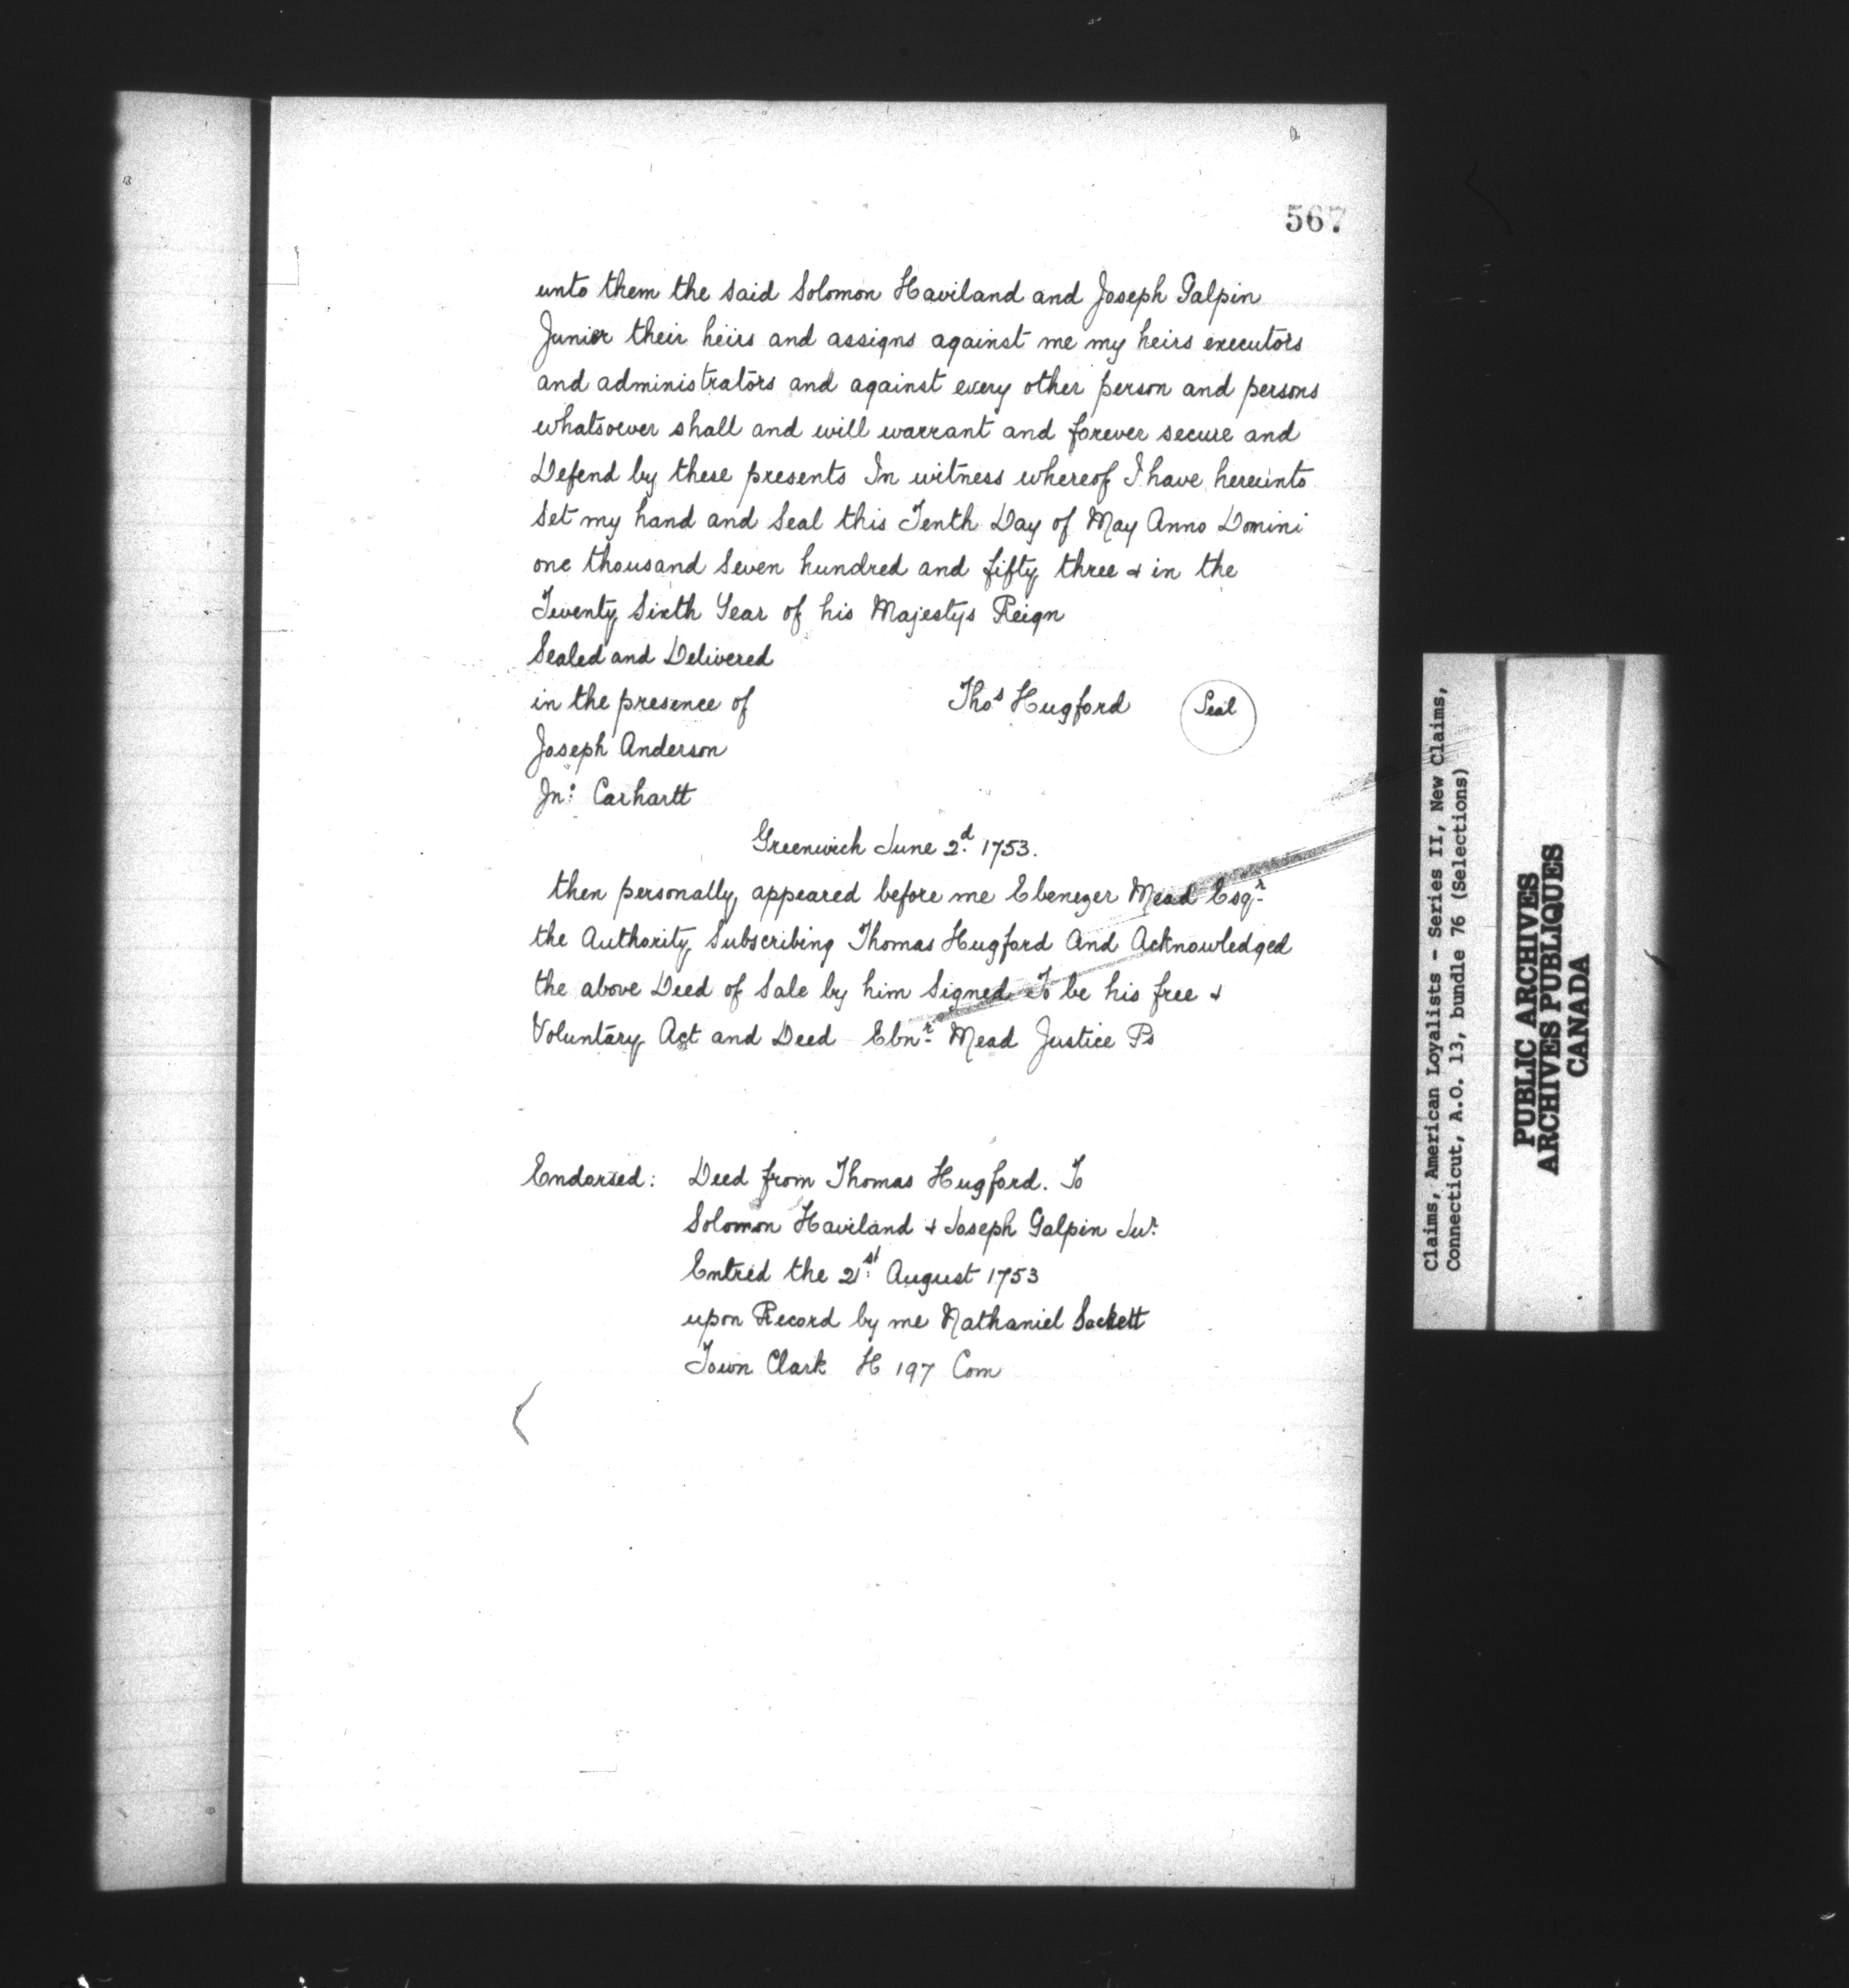 567
unto them the said Solomon Haviland and Joseph Galpin
Junior their heirs and assigns against me my heirs executors
and administrators and against every other person and persons
whatsoever shall and will warrant and forever secure and
Defend by these presents In witness whereof I have hereunto
Set my hand and Seal this Tenth Day of May Anno Domini
one thousand Seven hundred and fifty three & in the
Twenty Sixth Year of his Majestys Reign
Sealed and Delivered
in the presence of Thos Hugford Seal
Joseph Anderson
Jn: Carhartt
Greenwich June 2d. 1753.
then personally appeared before me Ebenezer Mead Esqr.
the Authority Subscribing Thomas Hugford And Acknowledged
the above Deed of Sale by him Signed To be his free &
Voluntary Act and Deed Ebnr. Mead Justice Ps
Endorsed: Deed from Thomas Hugford. To
Solomon Haviland & Joseph Galpin Jur.
Entred the 21st: August 1753
upon Record by me Nathaniel Sackett
Town Clark H 197 Com
Claims, American Loyalists - Series II, New Claims,
Connecticut, A.O. 13, bundle 76 (Selections)
PUBLIC ARCHIVES
ARCHIVES PUBLIQUES
CANADA